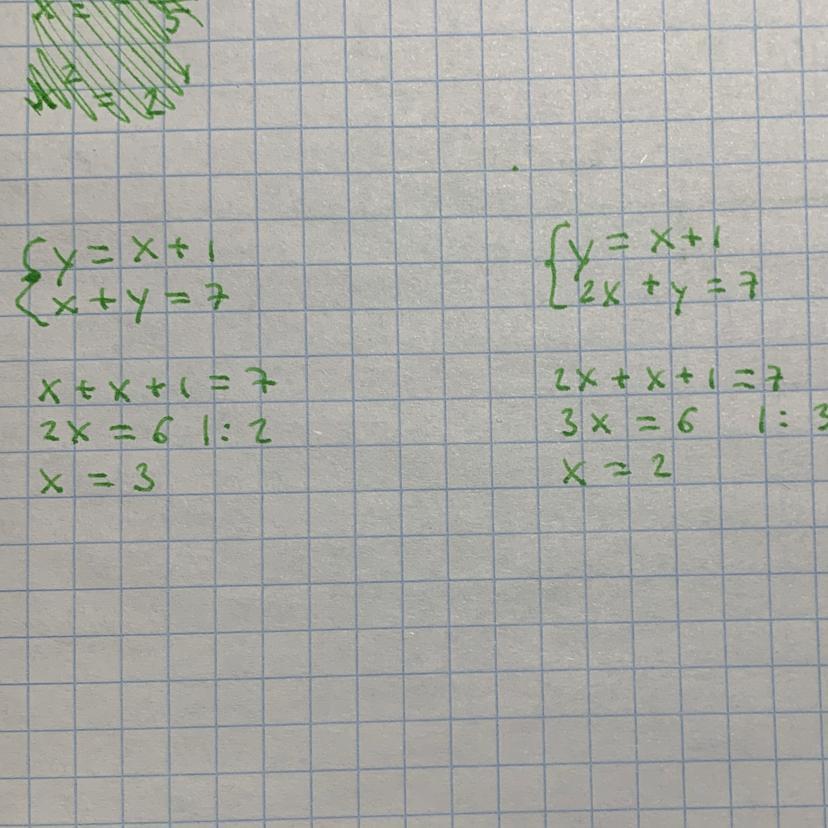 y = x + 1
x + y = 7
x + x + 1 = 7
2x = 6 |: 2
x = 3
y = x + 1
2x + y = 7
2x + x + 1 = 7
3x = 6 |: 3
x = 2